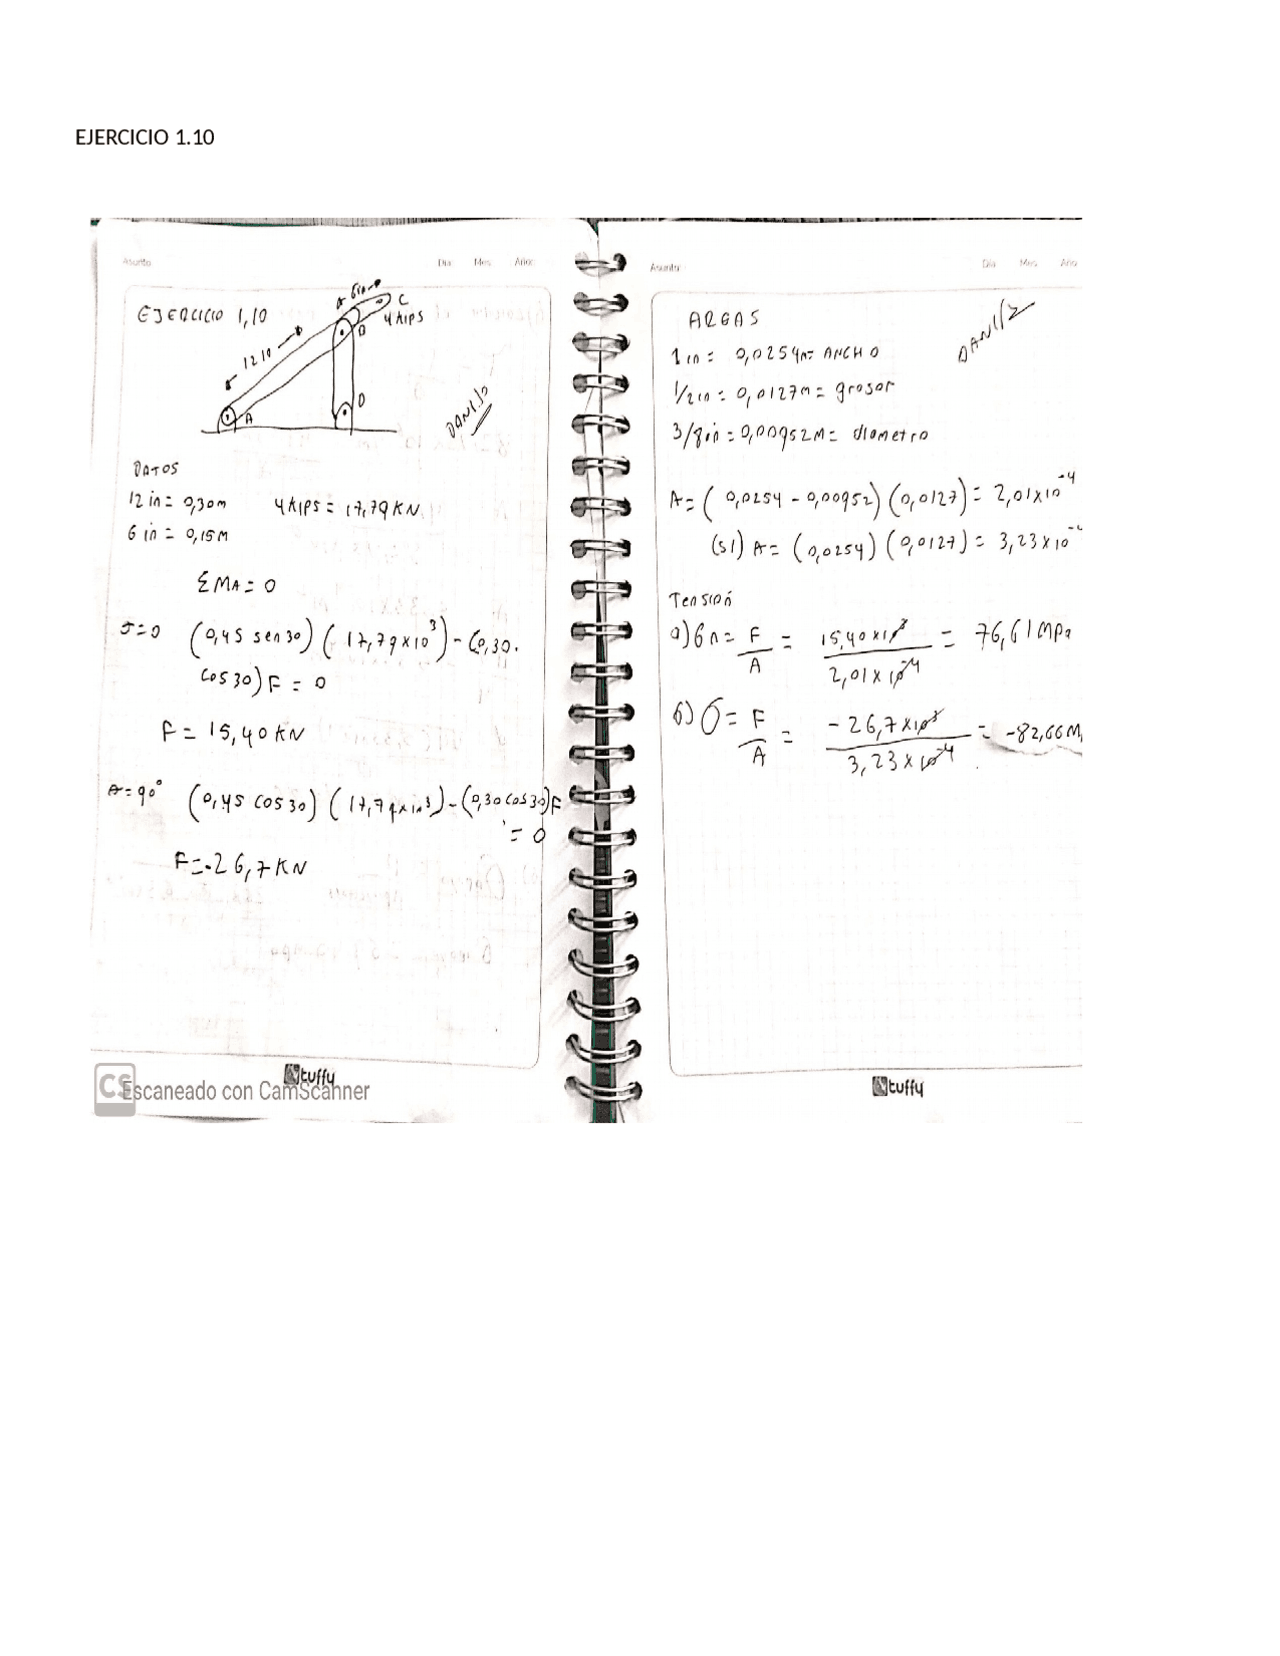 EJERCICIO 1.10
Asunto Dia Mes Año:
EJERCICIO 1,10
6in
C
4 KIPS
B
12 in
A
D
DANILO
DATOS
12 in = 0,30m 4 KIPS = 17,79 KN
6 in = 0,15M
ΣMA = 0
(0,45 sen 30) (17,79x10³) - (0,30.
cos 30) F = 0
F = 15,40 KN
= 90° (0,45 cos 30) (17,79x10³) - (0,30 cos 30) F
= 0
F = -26,7 KN
tuffy
CS Escaneado con CamScanner
Asunto Dia Mes Año
AREAS
1 in = 0,0254m = ANCHO
1/2 in = 0,0127m = grosor
3/8 in = 0,00952M = diametro
A = (0,0254 - 0,00952) (0,0127) = 2,01x10⁻⁴
(s1) A = (0,0254) (0,0127) = 3,23x10
Tensión
a) 6n = F/A = 15,40x10³ / 2,01x10⁻⁴ = 76,61 MPa
b) σ = F/A = -26,7x10³ / 3,23x10⁻⁴ = -82,66M
tuffy